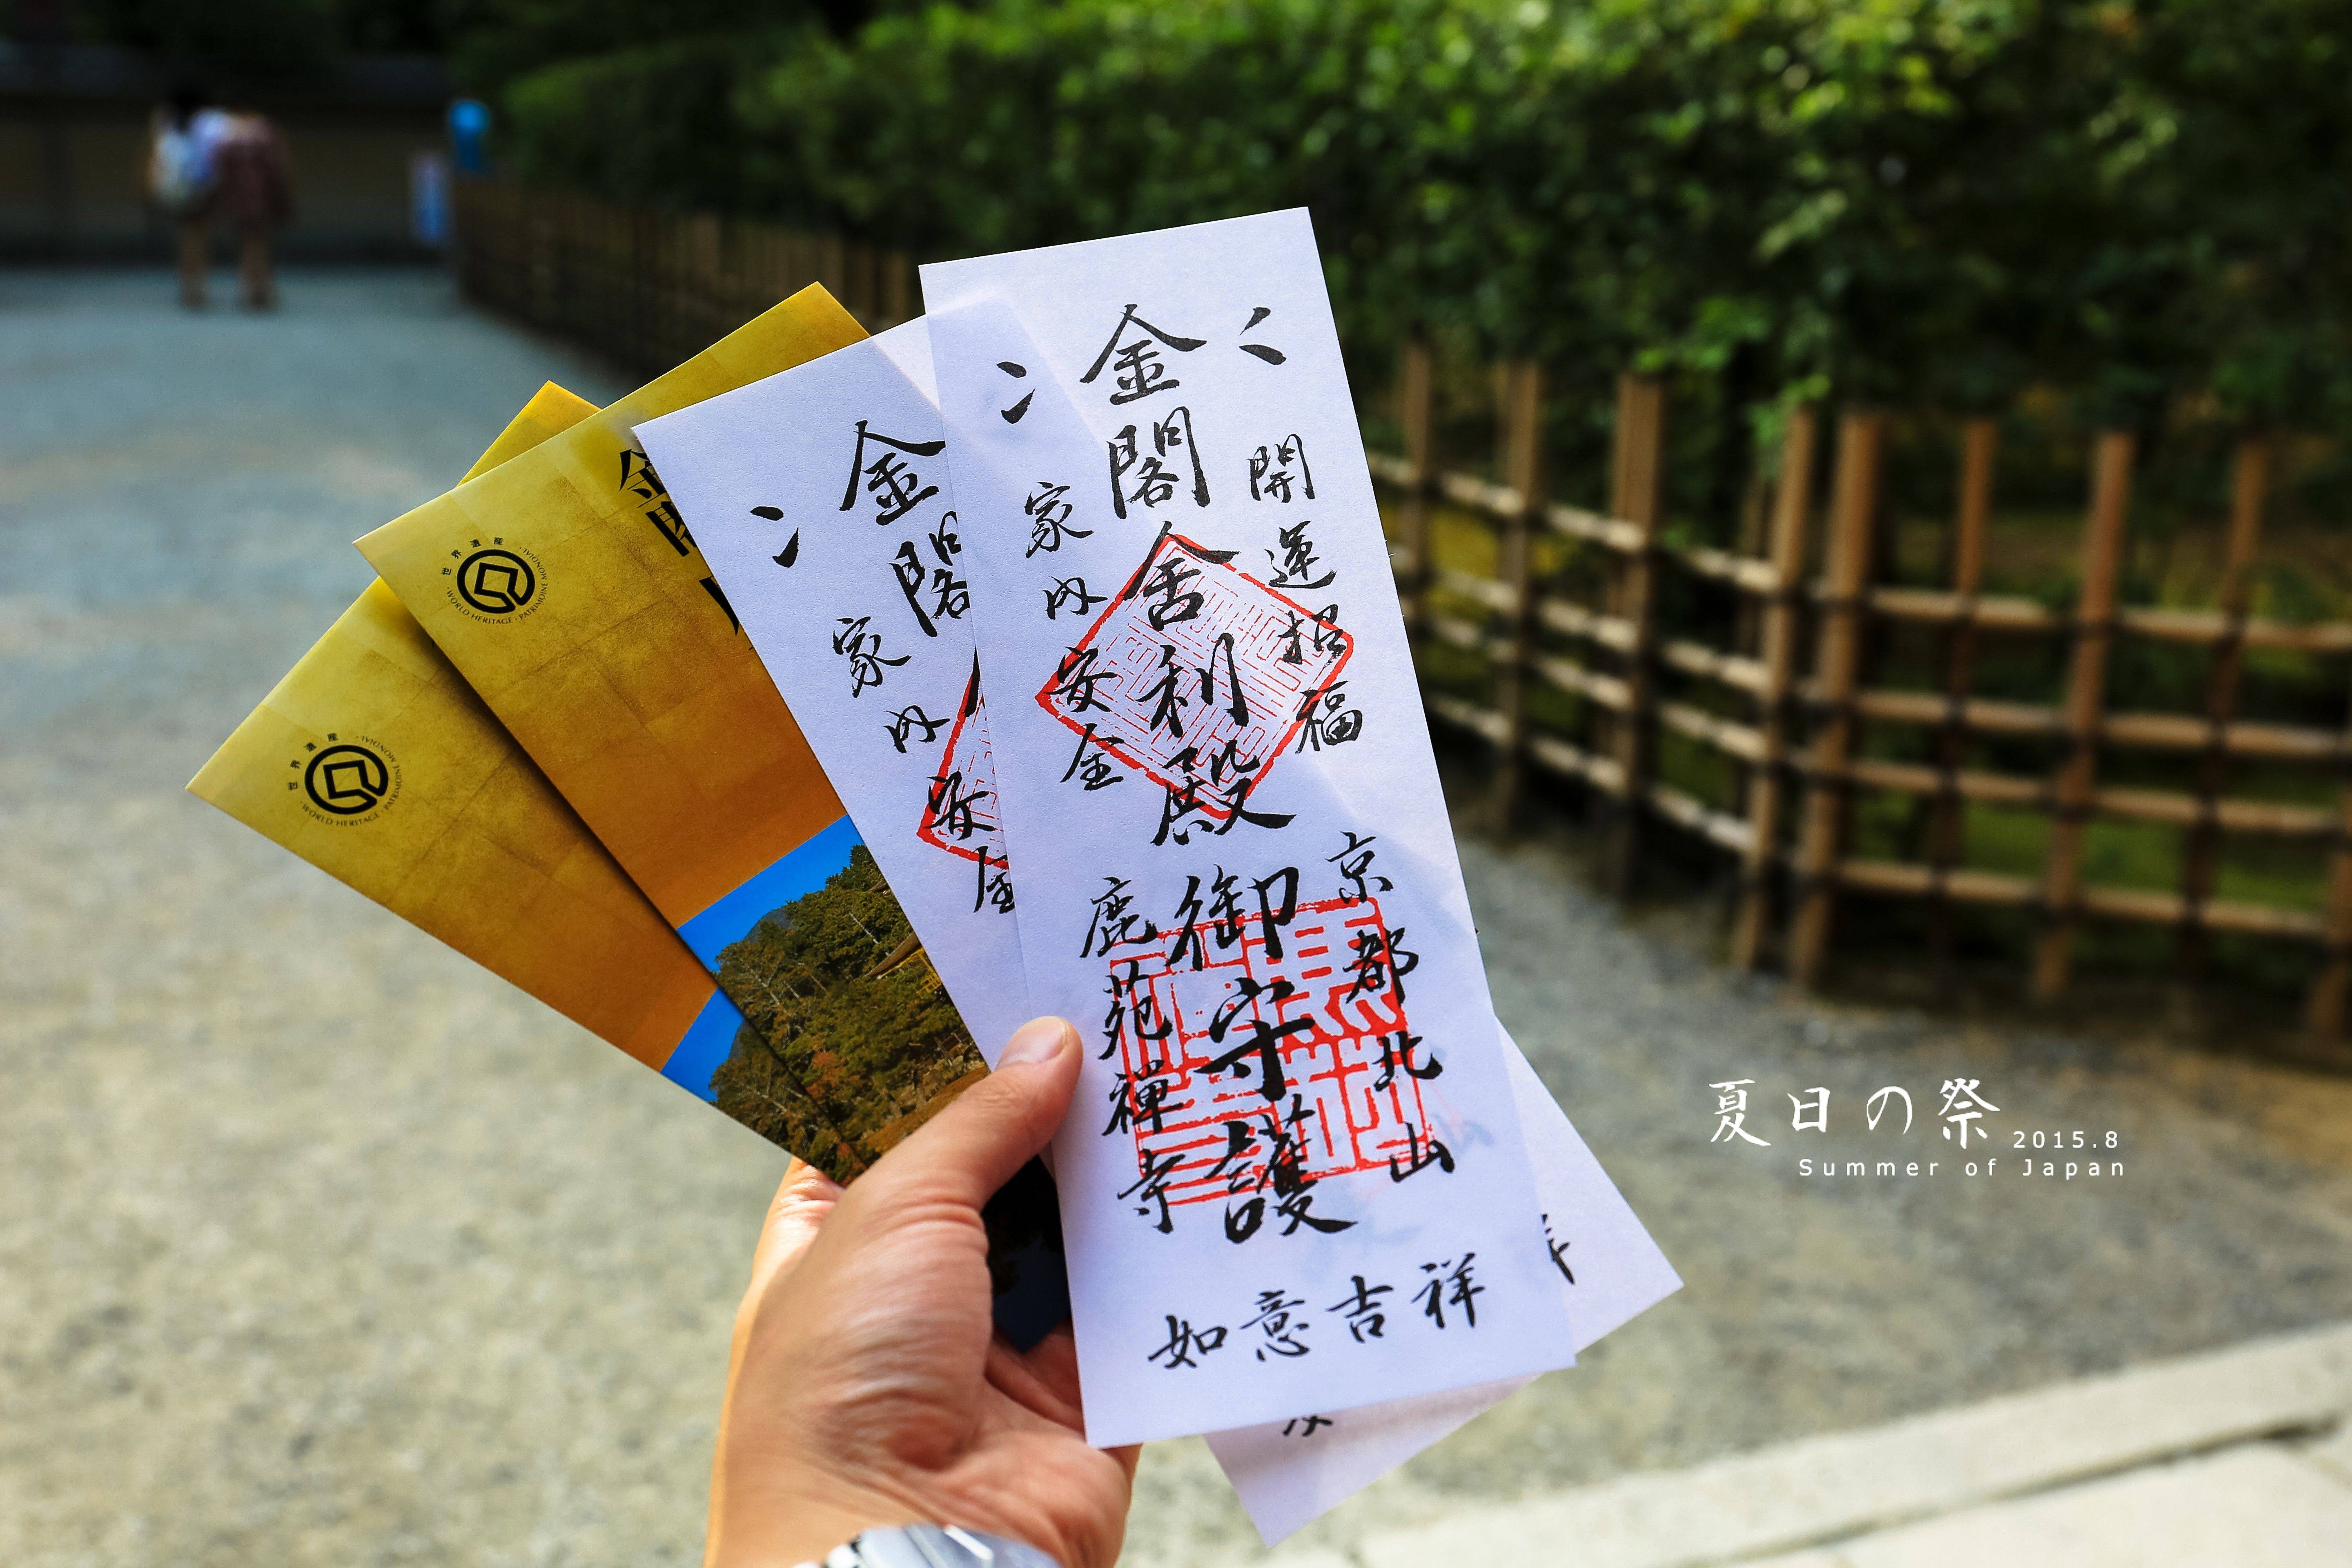 金閣舍利殿御守護
開運招福
家内安全
京都北山
鹿苑禅寺
如意吉祥
金閣
家内安全
祥
金閣
世界遺産 · PATRIMOINE MONDIAL · WORLD HERITAGE ·
世界遺産 · PATRIMOINE MONDIAL · WORLD HERITAGE ·
夏日の祭 2015.8
Summer of Japan